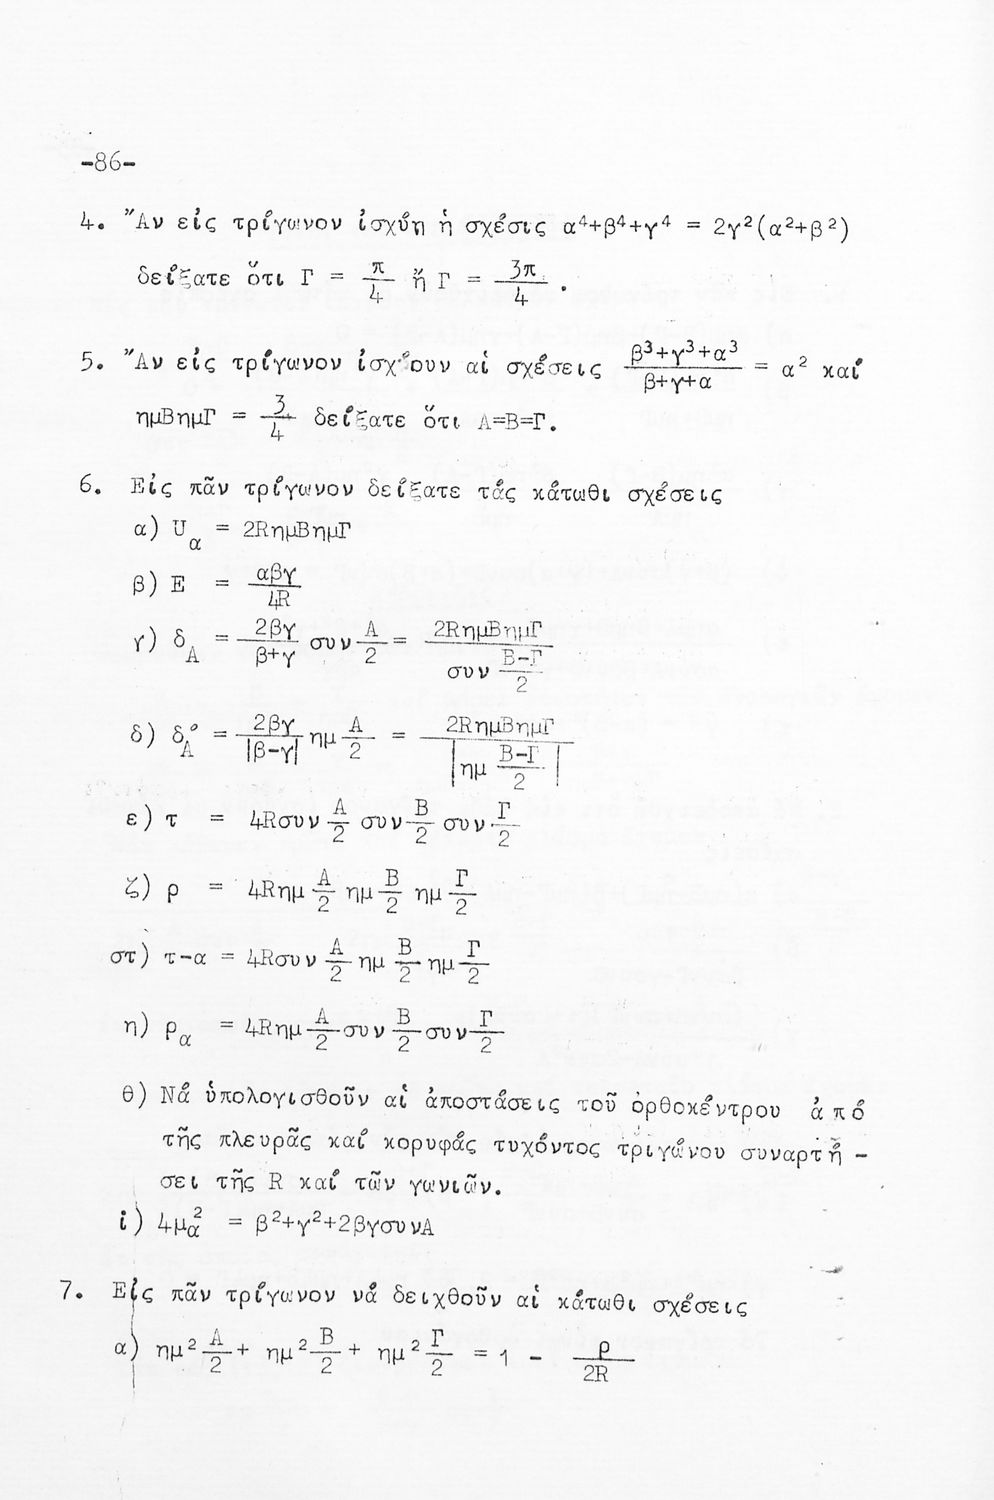 -86-
4. Ἄν εἰς τρίγωνον ἰσχύῃ ἡ σχέσις α⁴+β⁴+γ⁴ = 2γ²(α²+β²)
δείξατε ὅτι Γ = π/4 ἤ Γ = 3π/4 .
5. Ἄν εἰς τρίγωνον ἰσχύουν αἱ σχέσεις (β³+γ³+α³)/(β+γ+α) = α² καί
ημΒημΓ = 3/4 δείξατε ὅτι Α=Β=Γ.
6. Εἰς πᾶν τρίγωνον δείξατε τάς κάτωθι σχέσεις
α) U_α = 2RημΒημΓ
β) Ε = αβγ/4R
γ) δ_Α = 2βγ/(β+γ) συν Α/2 = 2RημΒημΓ/(συν (Β-Γ)/2)
δ) δ′_Α = 2βγ/|β-γ| ημ Α/2 = 2RημΒημΓ/|ημ (Β-Γ)/2|
ε) τ = 4Rσυν Α/2 συν Β/2 συν Γ/2
ζ) ρ = 4Rημ Α/2 ημ Β/2 ημ Γ/2
στ) τ-α = 4Rσυν Α/2 ημ Β/2 ημ Γ/2
η) ρ_α = 4Rημ Α/2 συν Β/2 συν Γ/2
θ) Νά ὑπολογισθοῦν αἱ ἀποστάσεις τοῦ ὀρθοκέντρου ἀπό
τῆς πλευρᾶς καί κορυφάς τυχόντος τριγώνου συναρτή -
σει τῆς R καί τῶν γωνιῶν.
ι) 4μ_α² = β²+γ²+2βγσυνΑ
7. Εἰς πᾶν τρίγωνον νά δειχθοῦν αἱ κάτωθι σχέσεις
α) ημ² Α/2 + ημ² Β/2 + ημ² Γ/2 = 1 - ρ/2R